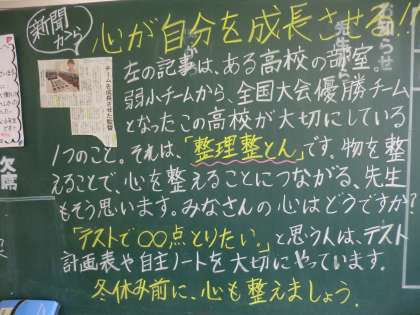 新聞から
心が自分を成長させる!!
チームを成長させた監督
左の記事は、ある高校の部室。
弱小チームから、全国大会優勝チーム
となったこの高校が大切にしている
1つのこと。それは、「整理整とん」です。物を整
えることで、心を整えることにつながる、先生
もそう思います。みなさんの心はどうですか?
「テストで〇〇点とりたい。」と思う人は、テスト
計画表や自主ノートを大切にやっています。
冬休み前に、心も整えましょう。
欠席
お知らせ
先生から